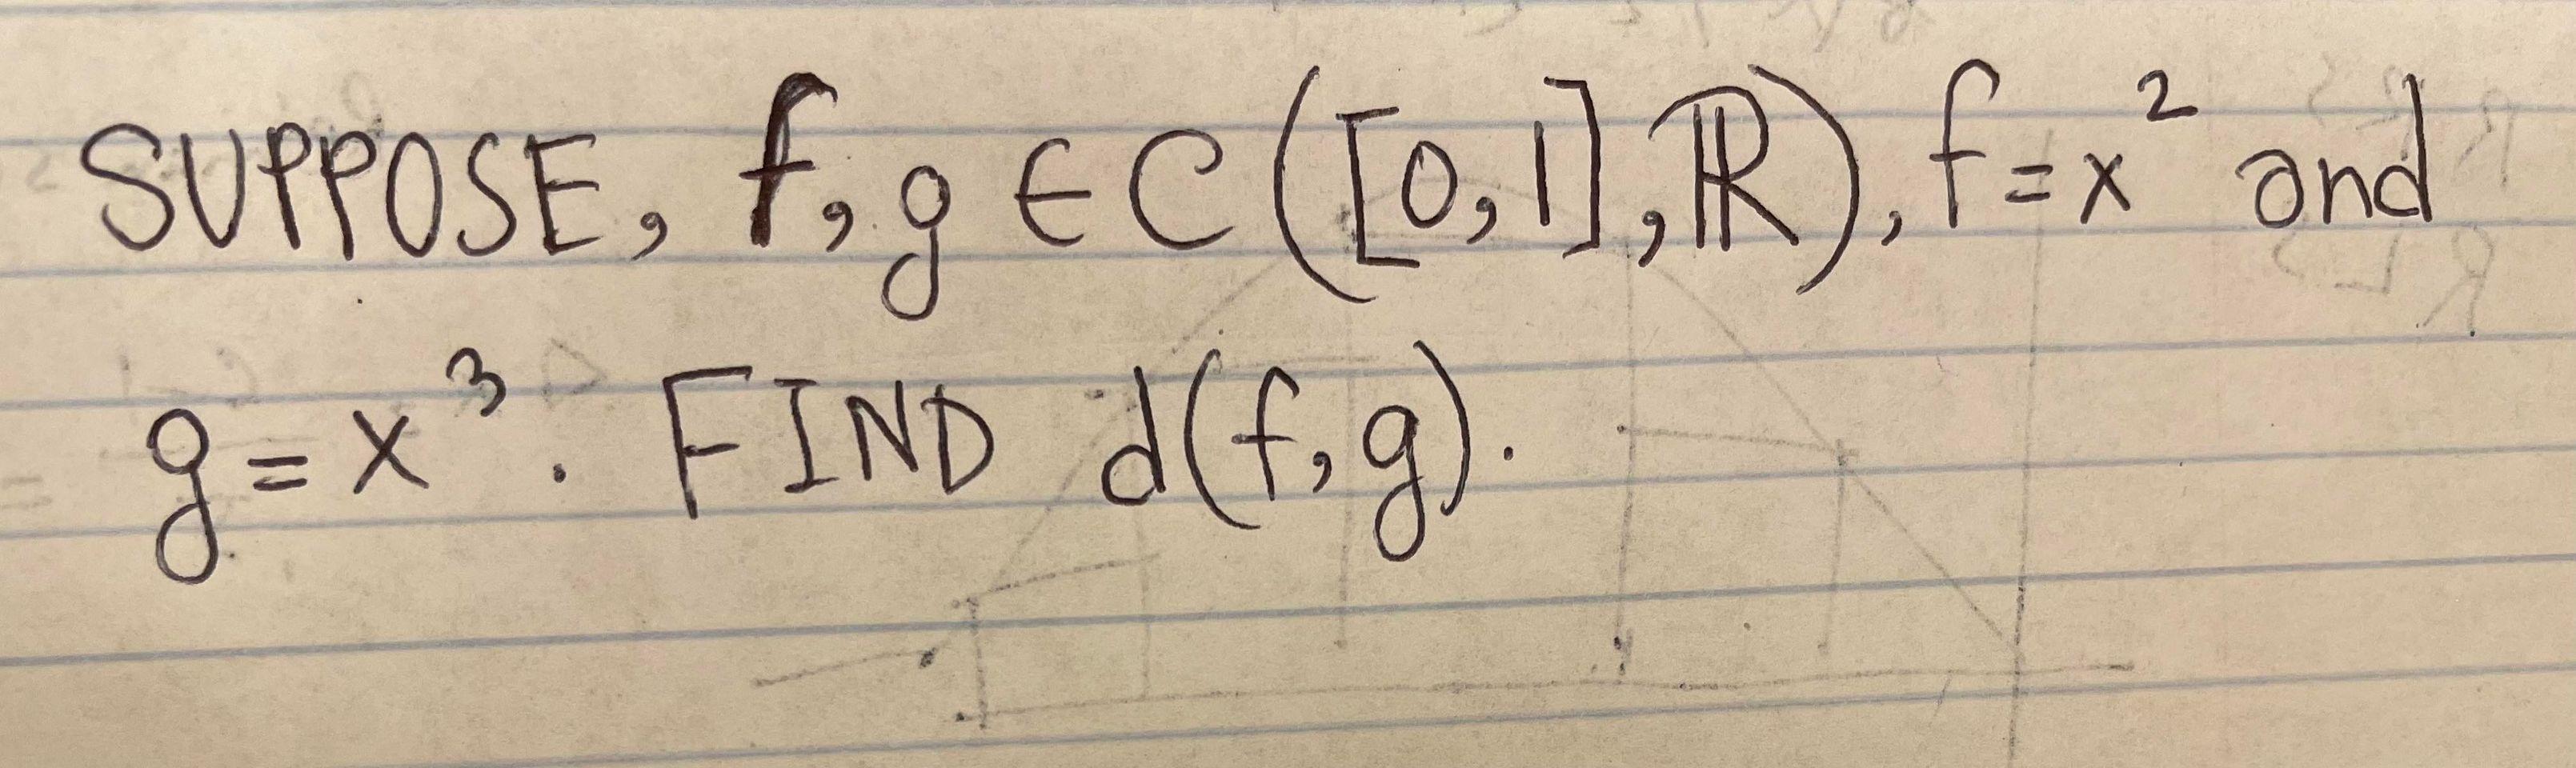 SUPPOSE, f, g ∈ C([0,1],ℝ), f=x² and
g=x³. FIND d(f,g).